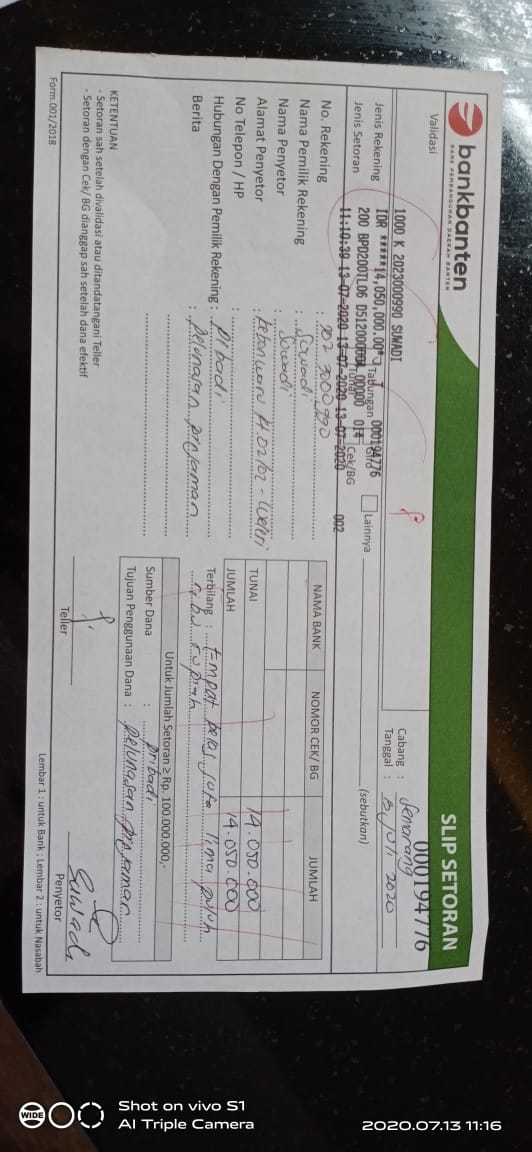 bankbanten
BANK PEMBANGUNAN DAERAH BANTEN
SLIP SETORAN
000194776
Validasi
1000 K 2023000990 SUWADI
IDR *****14,050,000.00*
000194776
200 BPD200TL06 D512000
00000
002
11:10:39 13-07-2020 13-07-2020 13-07-2020
Cabang : Semarang
Tanggal : 13 Juli 2020
Jenis Rekening
Tabungan
Giro
Jenis Setoran
Tunai
Cek/BG
Lainnya
(sebutkan)
No. Rekening : 202 3000990
Nama Pemilik Rekening : Suwadi
Nama Penyetor : Suwadi
Alamat Penyetor : 4.02/02 - Weleri
No Telepon / HP :
Hubungan Dengan Pemilik Rekening : Pribadi
Berita : pelunasan pinjaman
NAMA BANK NOMOR CEK/ BG JUMLAH
TUNAI 14.050.000
JUMLAH 14.050.000
Terbilang : Empat belas juta lima puluh
ribu rupiah
Untuk Jumlah Setoran ≥ Rp. 100.000.000,-
Sumber Dana : pribadi
Tujuan Penggunaan Dana : pelunasan pinjaman
KETENTUAN
- Setoran sah setelah divalidasi atau ditandatangani Teller
- Setoran dengan Cek/ BG dianggap sah setelah dana efektif
Teller
Suwadi
Penyetor
Form.001/2018
Lembar 1 : untuk Bank ; Lembar 2 : untuk Nasabah
WIDE
Shot on vivo S1
AI Triple Camera
2020.07.13 11:16